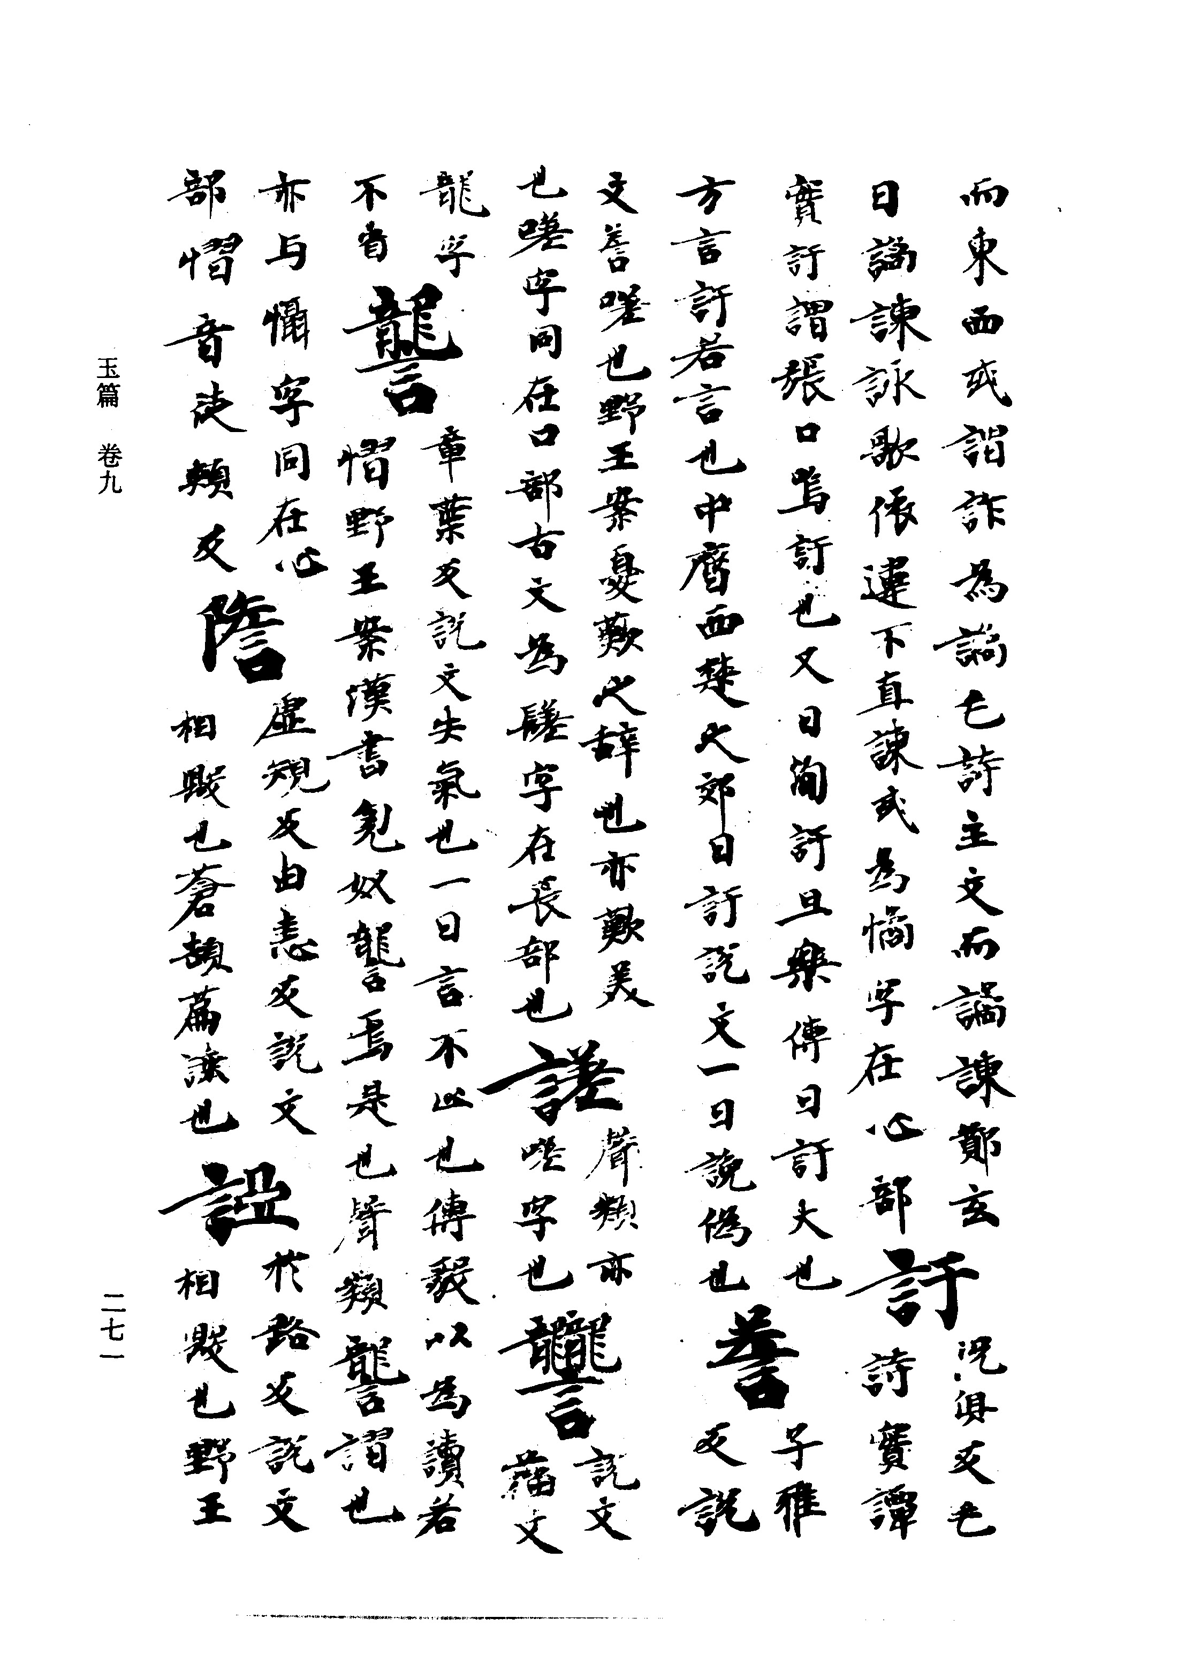 而東西或謂詐為譎毛詩主文而譎諫鄭玄
曰譎諫詠歌依違不直諫或為憰字在心部
訏
況俱反毛
詩實譚
實訏謂張口嗚訏也又曰洵訏且樂傳曰訏大也
方言訏若言也中齊西楚之郊曰訏說文一曰詭偽也
䜺
子雅
反說
文䜺嗟也野王案憂歎之辞也亦歎美
也嗟字同在口部古文為䰈字在長部也
謯
聲類亦
嗟字也
讋
說文
籀文
龍字
不省
讋
章葉反說文失氣也一曰言不止也傅毅以為讀若
慴野王案漢書匈奴讋焉是也聲類讋謵也
亦与懾字同在心
部慴音徒頰反
虛規反由恚反說文
相毀也蒼頡篇也
誈
於路反說文
相毀也野王
玉篇 卷九
二七一